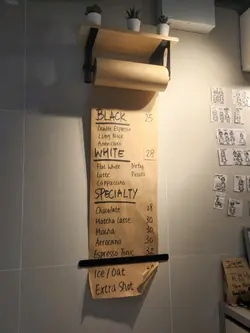 BLACK 25
Double Espresso
Long Black
Americano
WHITE 28
Flat White Dirty
Latte Piccolo
Cappuccino
SPECIALTY
Chocolate 28
Matcha Latte 30
Mocha 30
Affocano 30
Espresso Tonic 32
Ice/Oat
Extra Shot